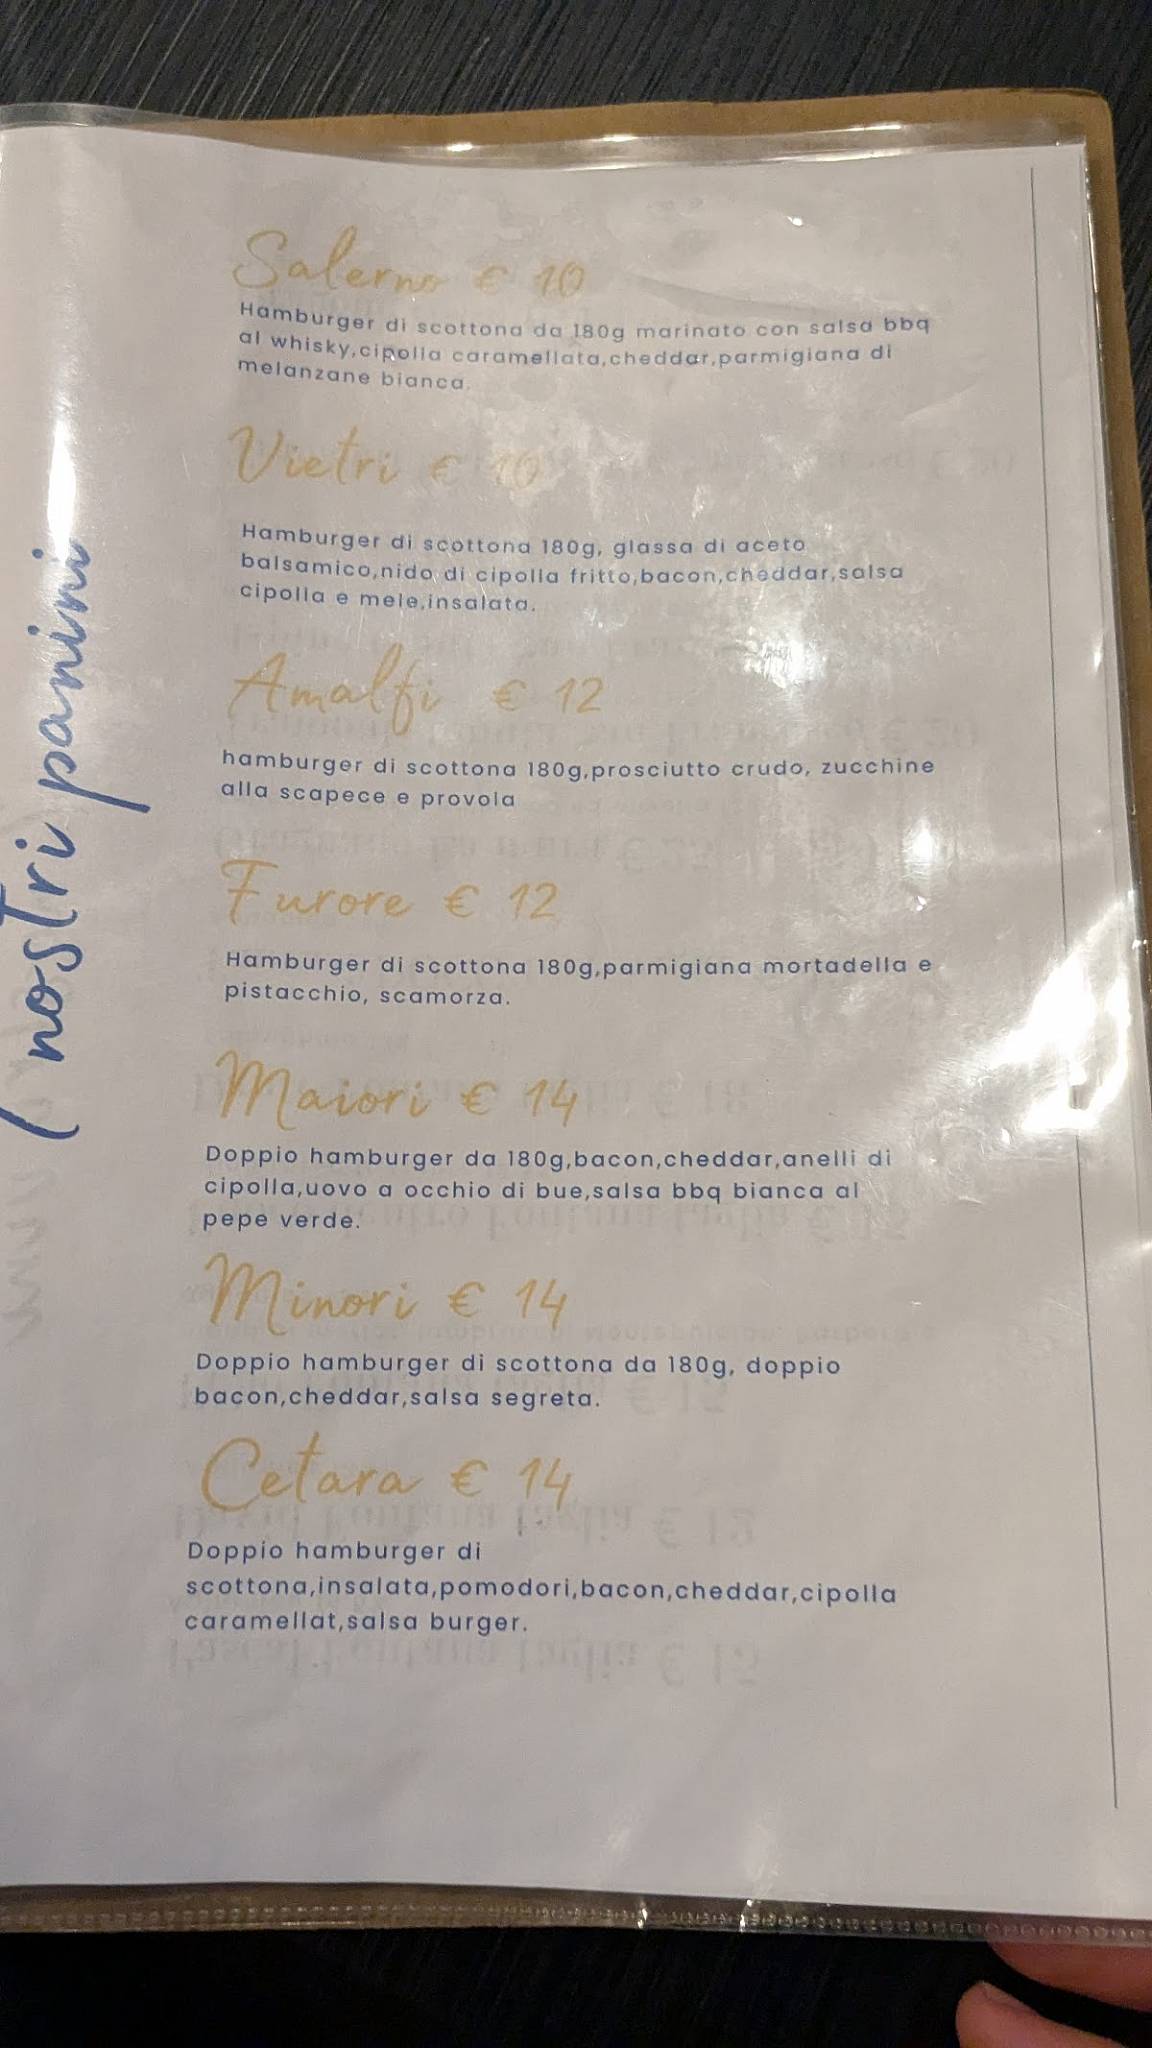 I nostri panini
Salerno € 10
Hamburger di scottona da 180g marinato con salsa bbq
al whisky,cipolla caramellata,cheddar,parmigiana di
melanzane bianca.
Vietri € 10
Hamburger di scottona 180g, glassa di aceto
balsamico,nido di cipolla fritto,bacon,cheddar,salsa
cipolla e mele,insalata.
Amalfi € 12
hamburger di scottona 180g,prosciutto crudo, zucchine
alla scapece e provola
Furore € 12
Hamburger di scottona 180g,parmigiana mortadella e
pistacchio, scamorza.
Maiori € 14
Doppio hamburger da 180g,bacon,cheddar,anelli di
cipolla,uovo a occhio di bue,salsa bbq bianca al
pepe verde.
Minori € 14
Doppio hamburger di scottona da 180g, doppio
bacon,cheddar,salsa segreta.
Cetara € 14
Doppio hamburger di
scottona,insalata,pomodori,bacon,cheddar,cipolla
caramellat,salsa burger.